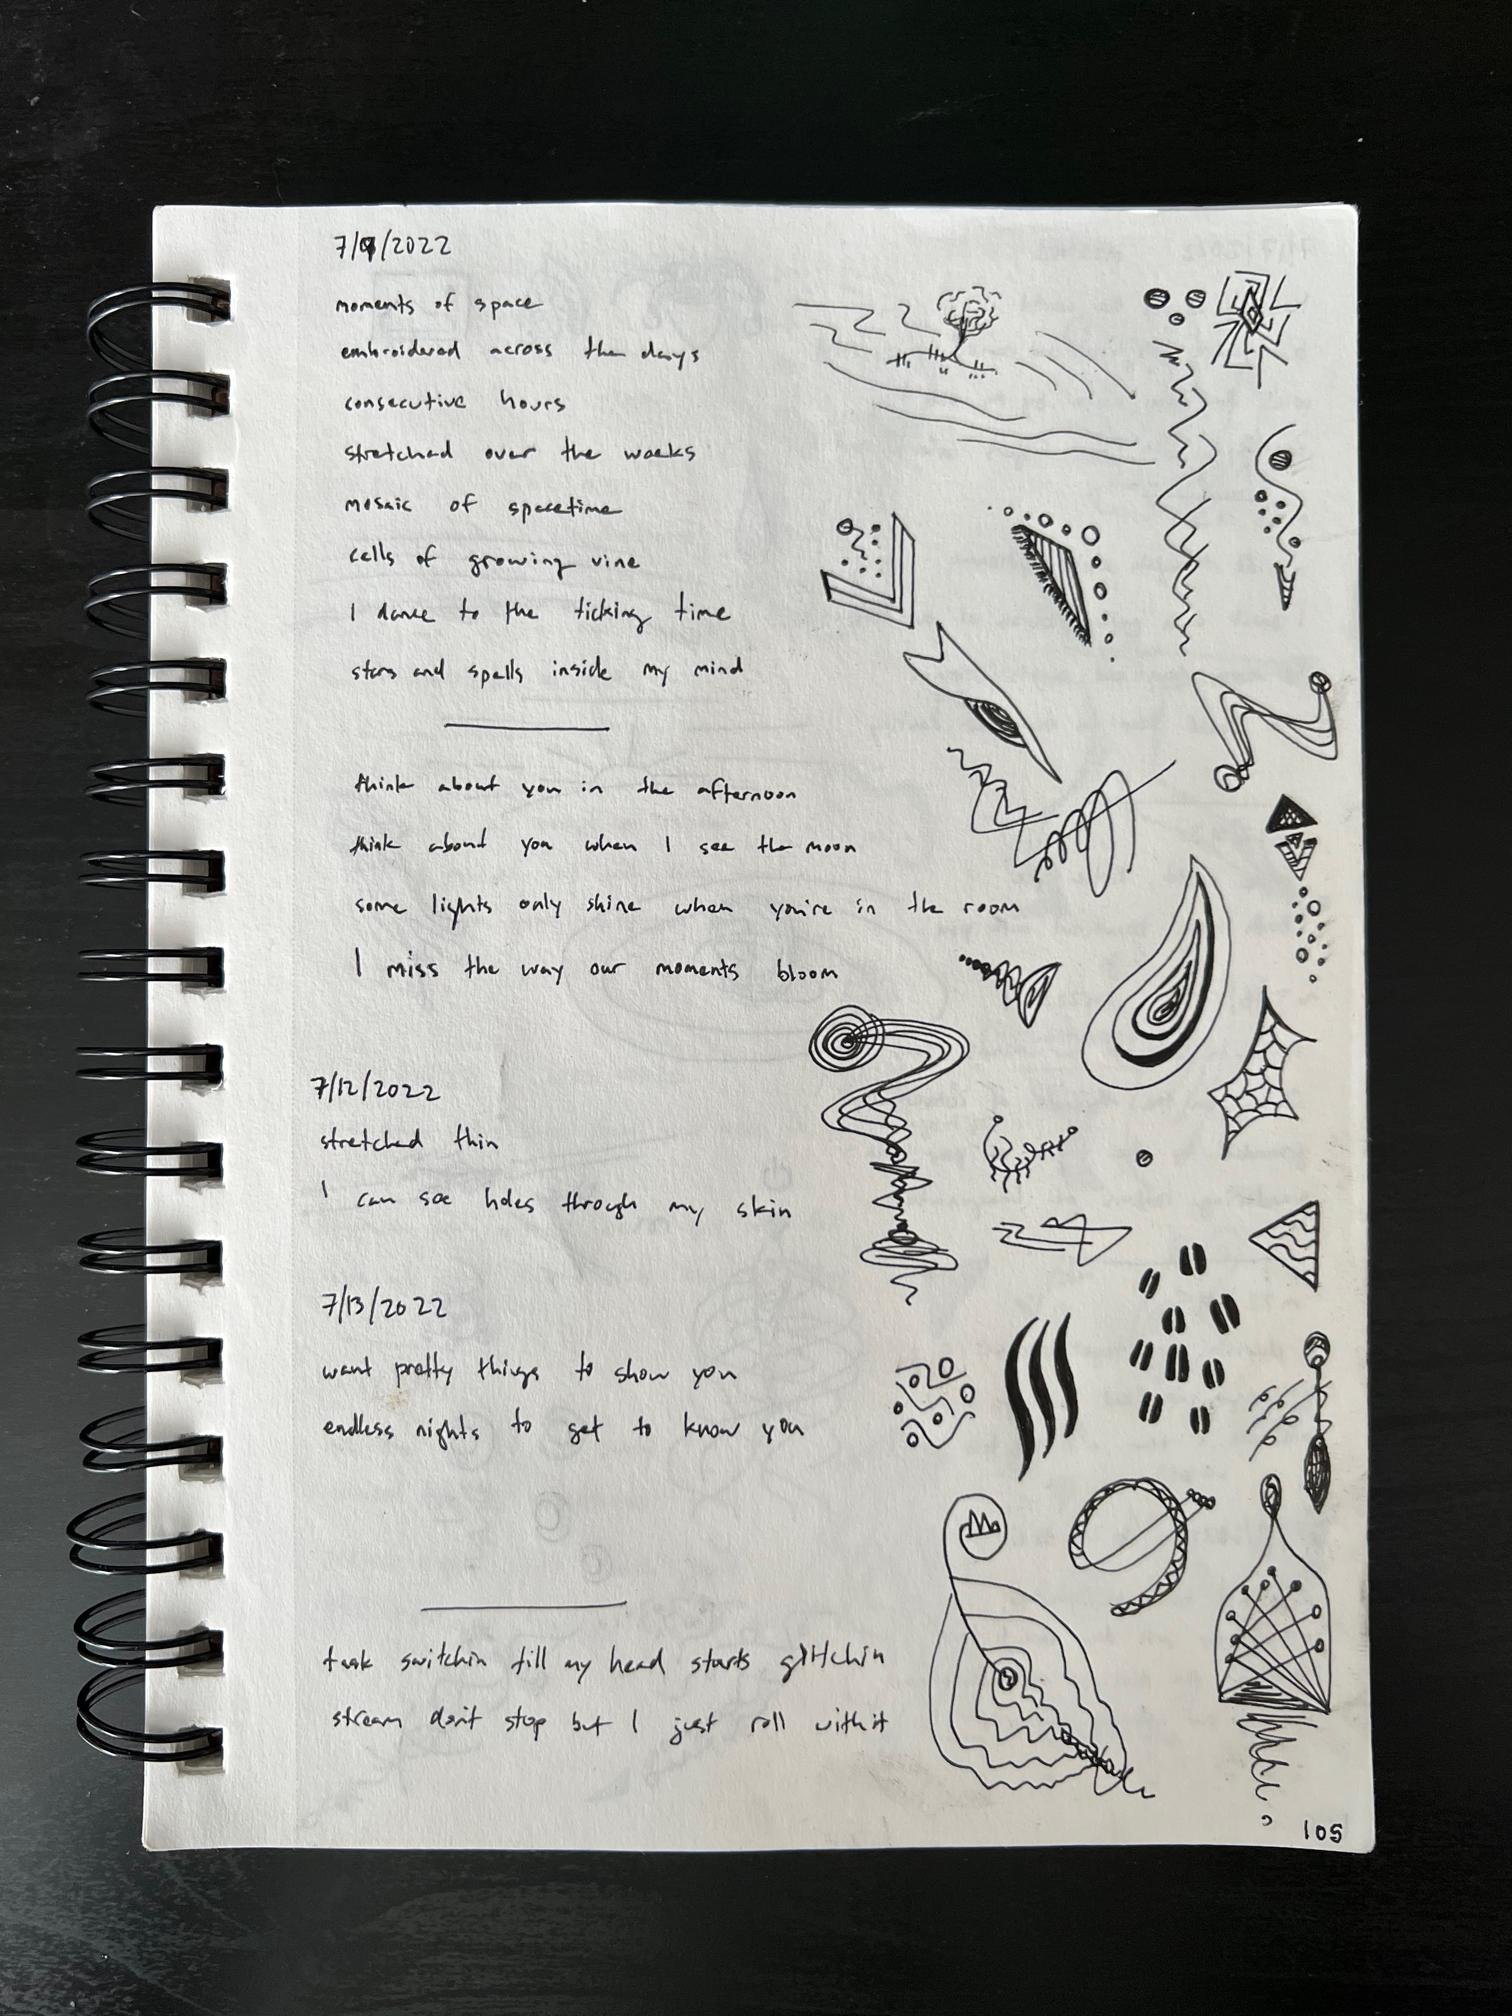 7/9/2022
moments of space
embroidered across the days
consecutive hours
stretched over the weeks
mosaic of spacetime
cells of growing vine
I dance to the ticking time
stars and spells inside my mind
think about you in the afternoon
think about you when I see the moon
some lights only shine when you're in the room
I miss the way our moments bloom
7/12/2022
stretched thin
I can see holes through my skin
7/13/2022
want pretty things to show you
endless nights to get to know you
task switchin till my head starts glitchin
stream don't stop but I just roll with it
105